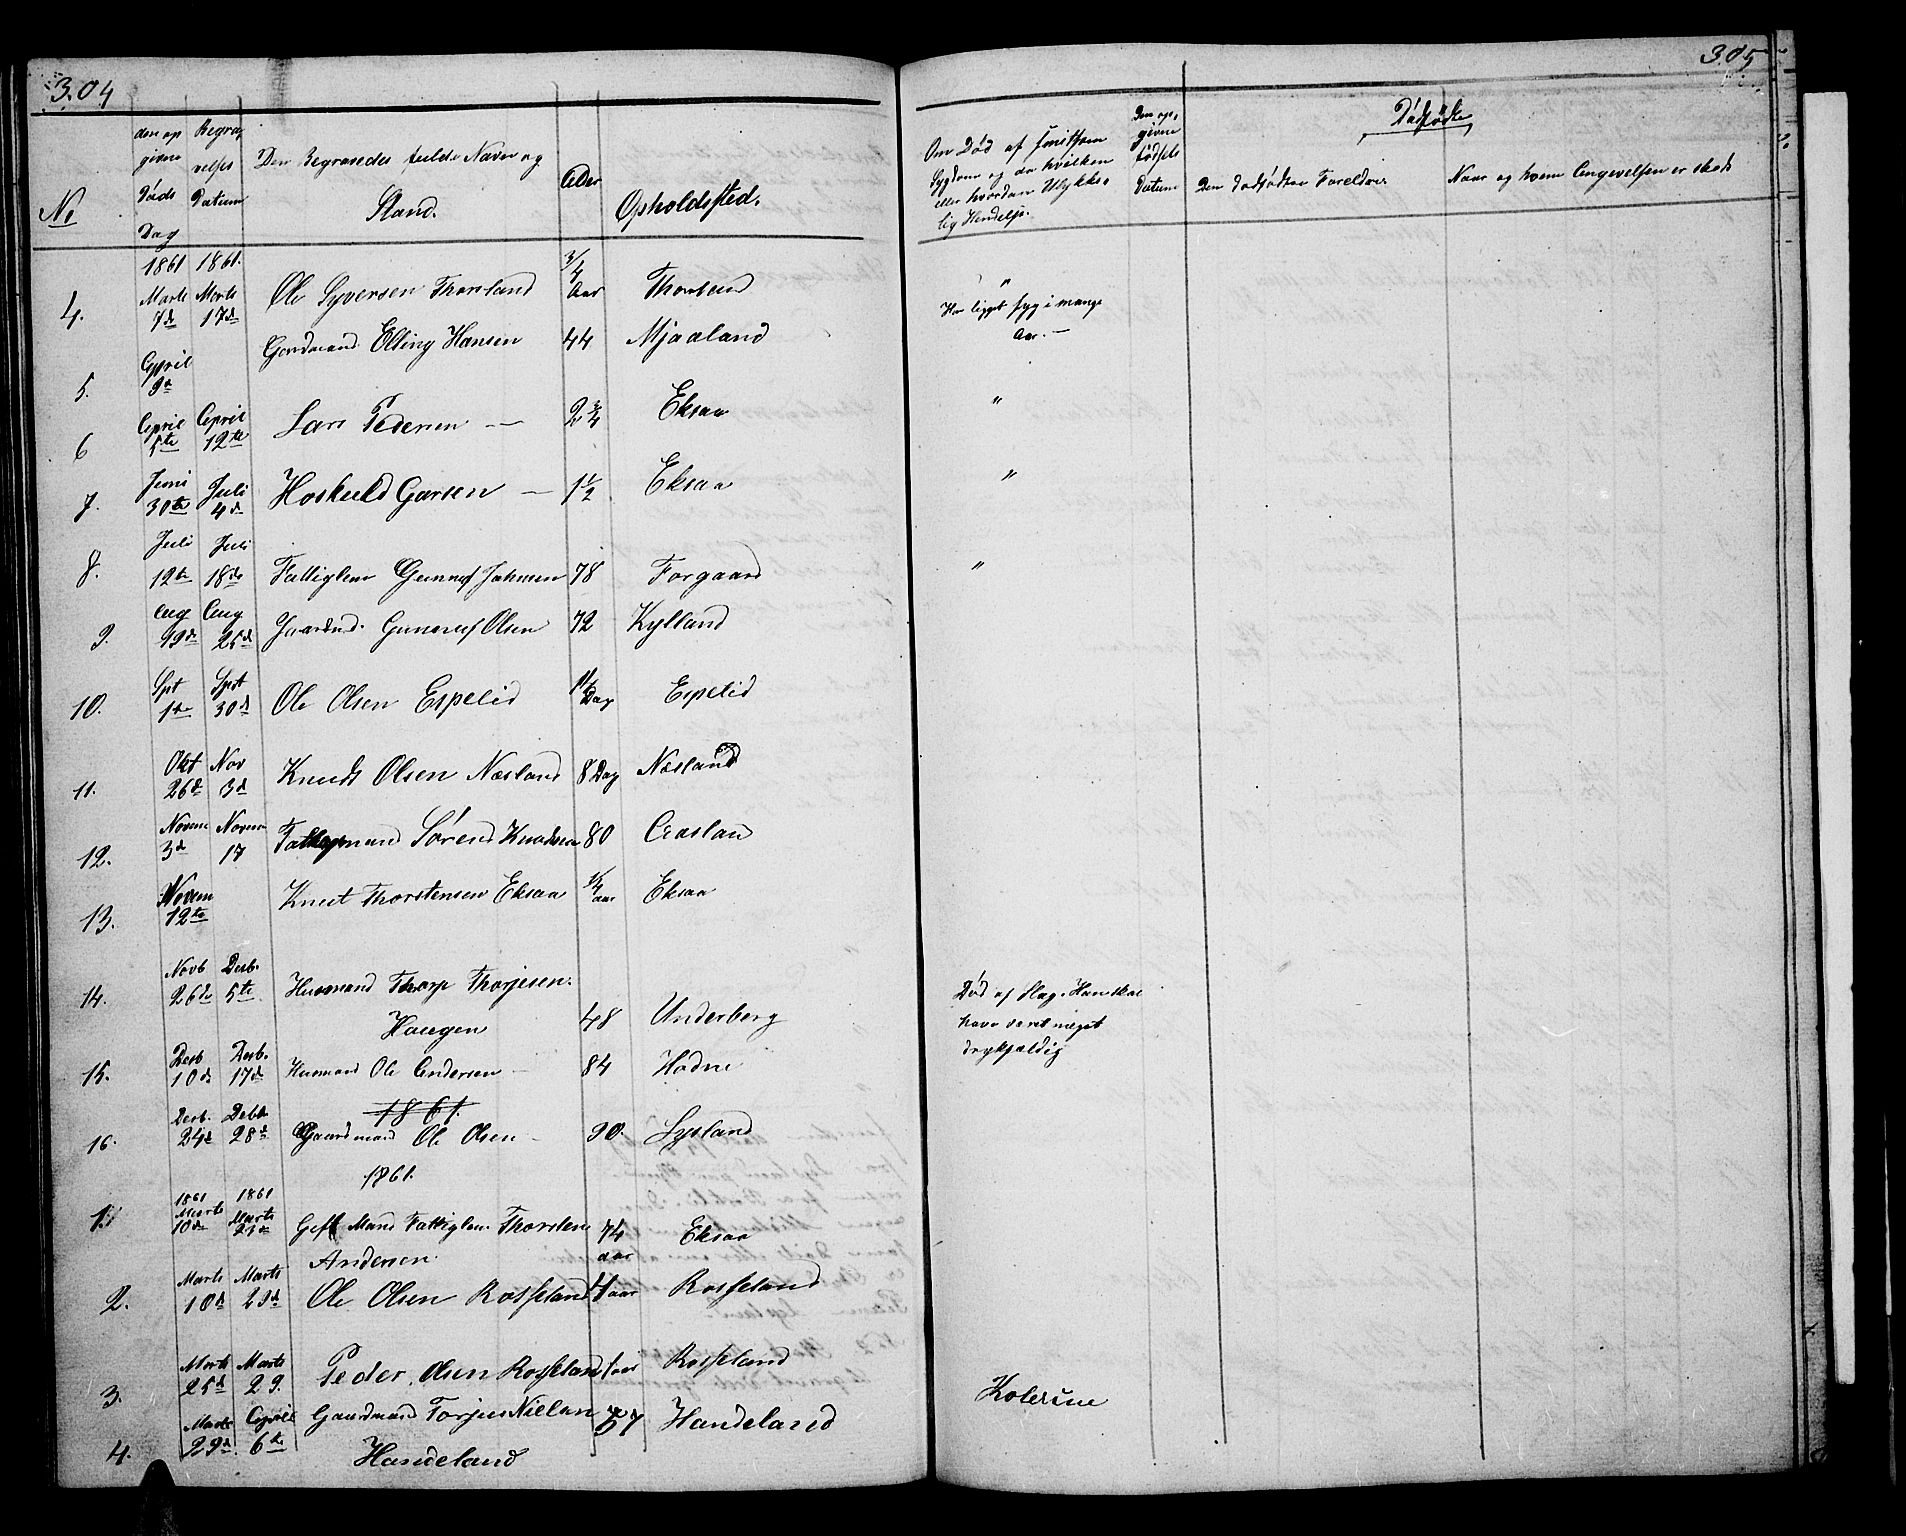 304
305
No
den op
givne
Døds
Dag
Begra,
velses
Datum
Den Begravedes fulde Navn og
Stand.
Alder
Opholdssted.
Om Død af smitsom
Sygdom og da hvilken
eller hvordan Ulykke-
lig Hendelse.
Den op-
givne
Fødsels
Datum
Dødfødte
Den dødfødtes Foreldrer
Naar og hvem Angivelsen er skede
1861 1861.
4. Marts 7de Marts 17de Ole Syversen Thorsland 3/4 Aar Thorsland "
5. April 9de Gaardmand Elling Hansen 44 Mjaaland Har ligget syg i mange
Aar. —
6 April 5te April 12te Lars Pedersen — 2 3/4 Eksaa "
7. Juni 30te Juli 4de Hoskuld Garsen — 1 1/2 Eksaa "
8. Juli 12te Juli 18de Fattiglem Gunnuf Johnsen 78 Torgaard "
9. Aug 19de Aug 25de Gaardmd. Gunnuf Olsen 72 Kylland
10. Spt 1te Spt 30de Ole Olsen Espelid Dag Espelid
11. Okt 26de Nov 3de Knudt Olsen Næsland 8 Dag Næsland
12. Novem 3de Novem 17 Søren Knudsen 80
13. Novem 12te Knut Thorstensen Eksaa 1/4 aar Eksaa
14. Novb 26de Desb. 5te Husmand Thorje Thorjesen.
Haugen 48 Underberg Død af Slag. Han skal
have været meget
drykfældig
15. Desb 10de Desb. 17de Husmand Ole Andersen — 84 Hodne
1861.
16. Desb. 24de Debb 28de Gaardmand Ole Olsen — 90. Sysland
1861.
1861 1861
1. Marts 10de Marts 23de Gift Mand Fattiglem Thorsten 74 aar Eksaa
Andersen
2. Marts 10de Marts 29de Ole Olsen Rosseland 4 aar Rosseland
3. Marts 25de Marts 29. Peder Olsen Rosseland aar Rosseland
4. Marts 29de April 6te Gaardmand Torjus 57 Handeland Kolerine
Handeland